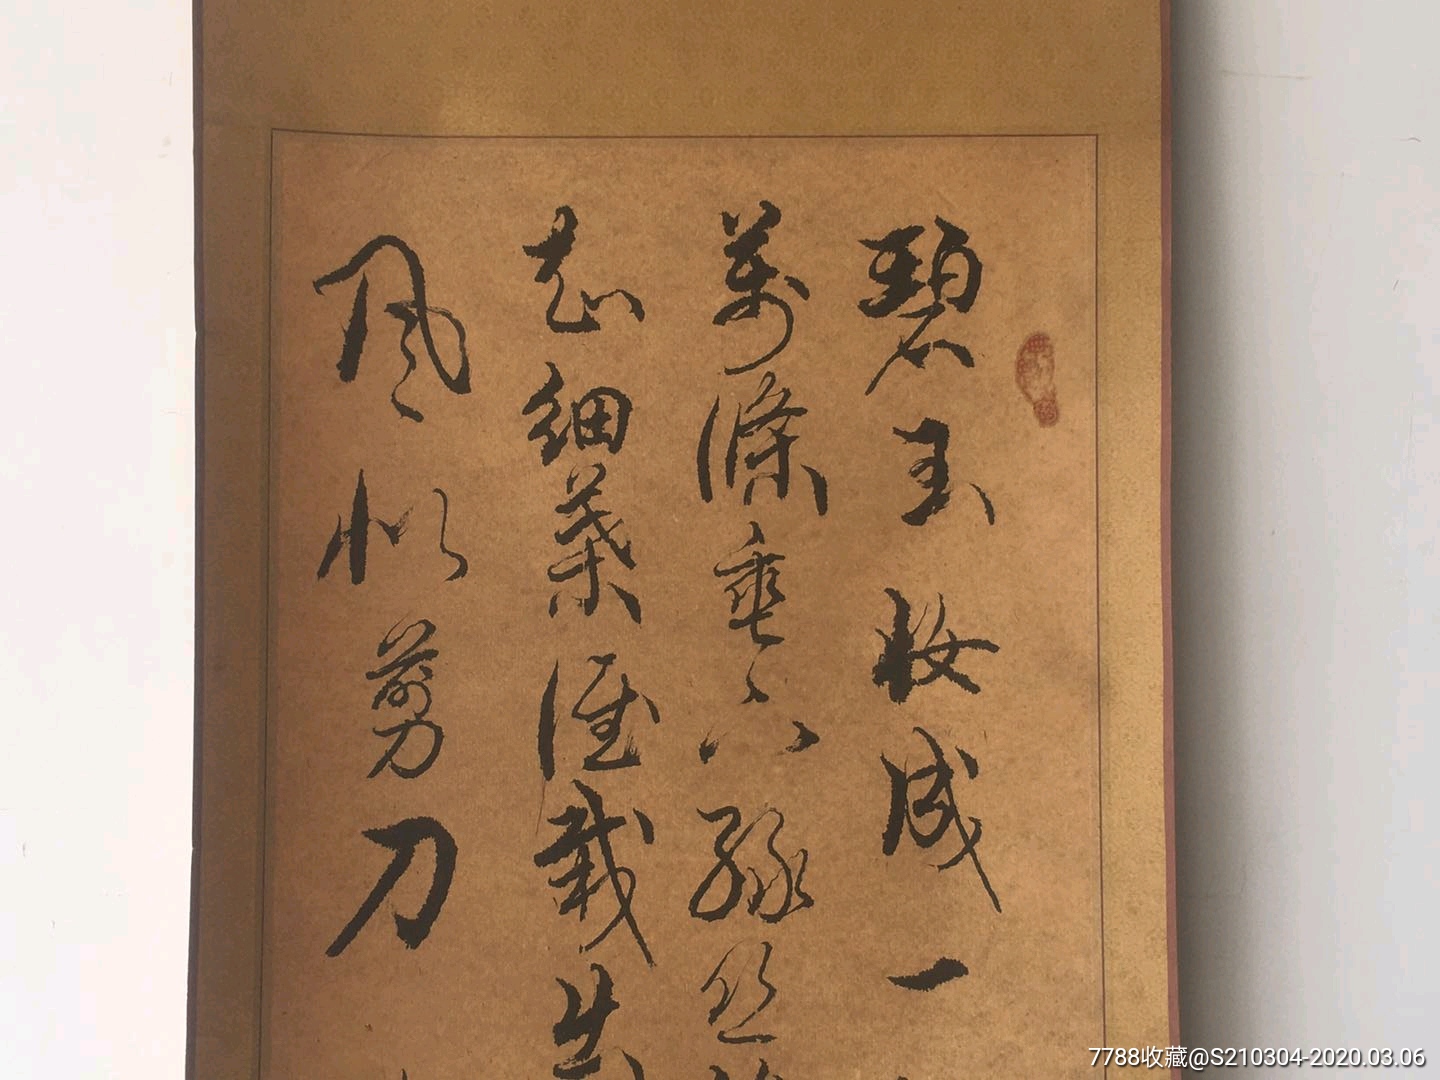 碧玉妆成一
萬條垂下綠丝
知細葉谁裁出
风似剪刀
7788收藏@S210304-2020.03.06